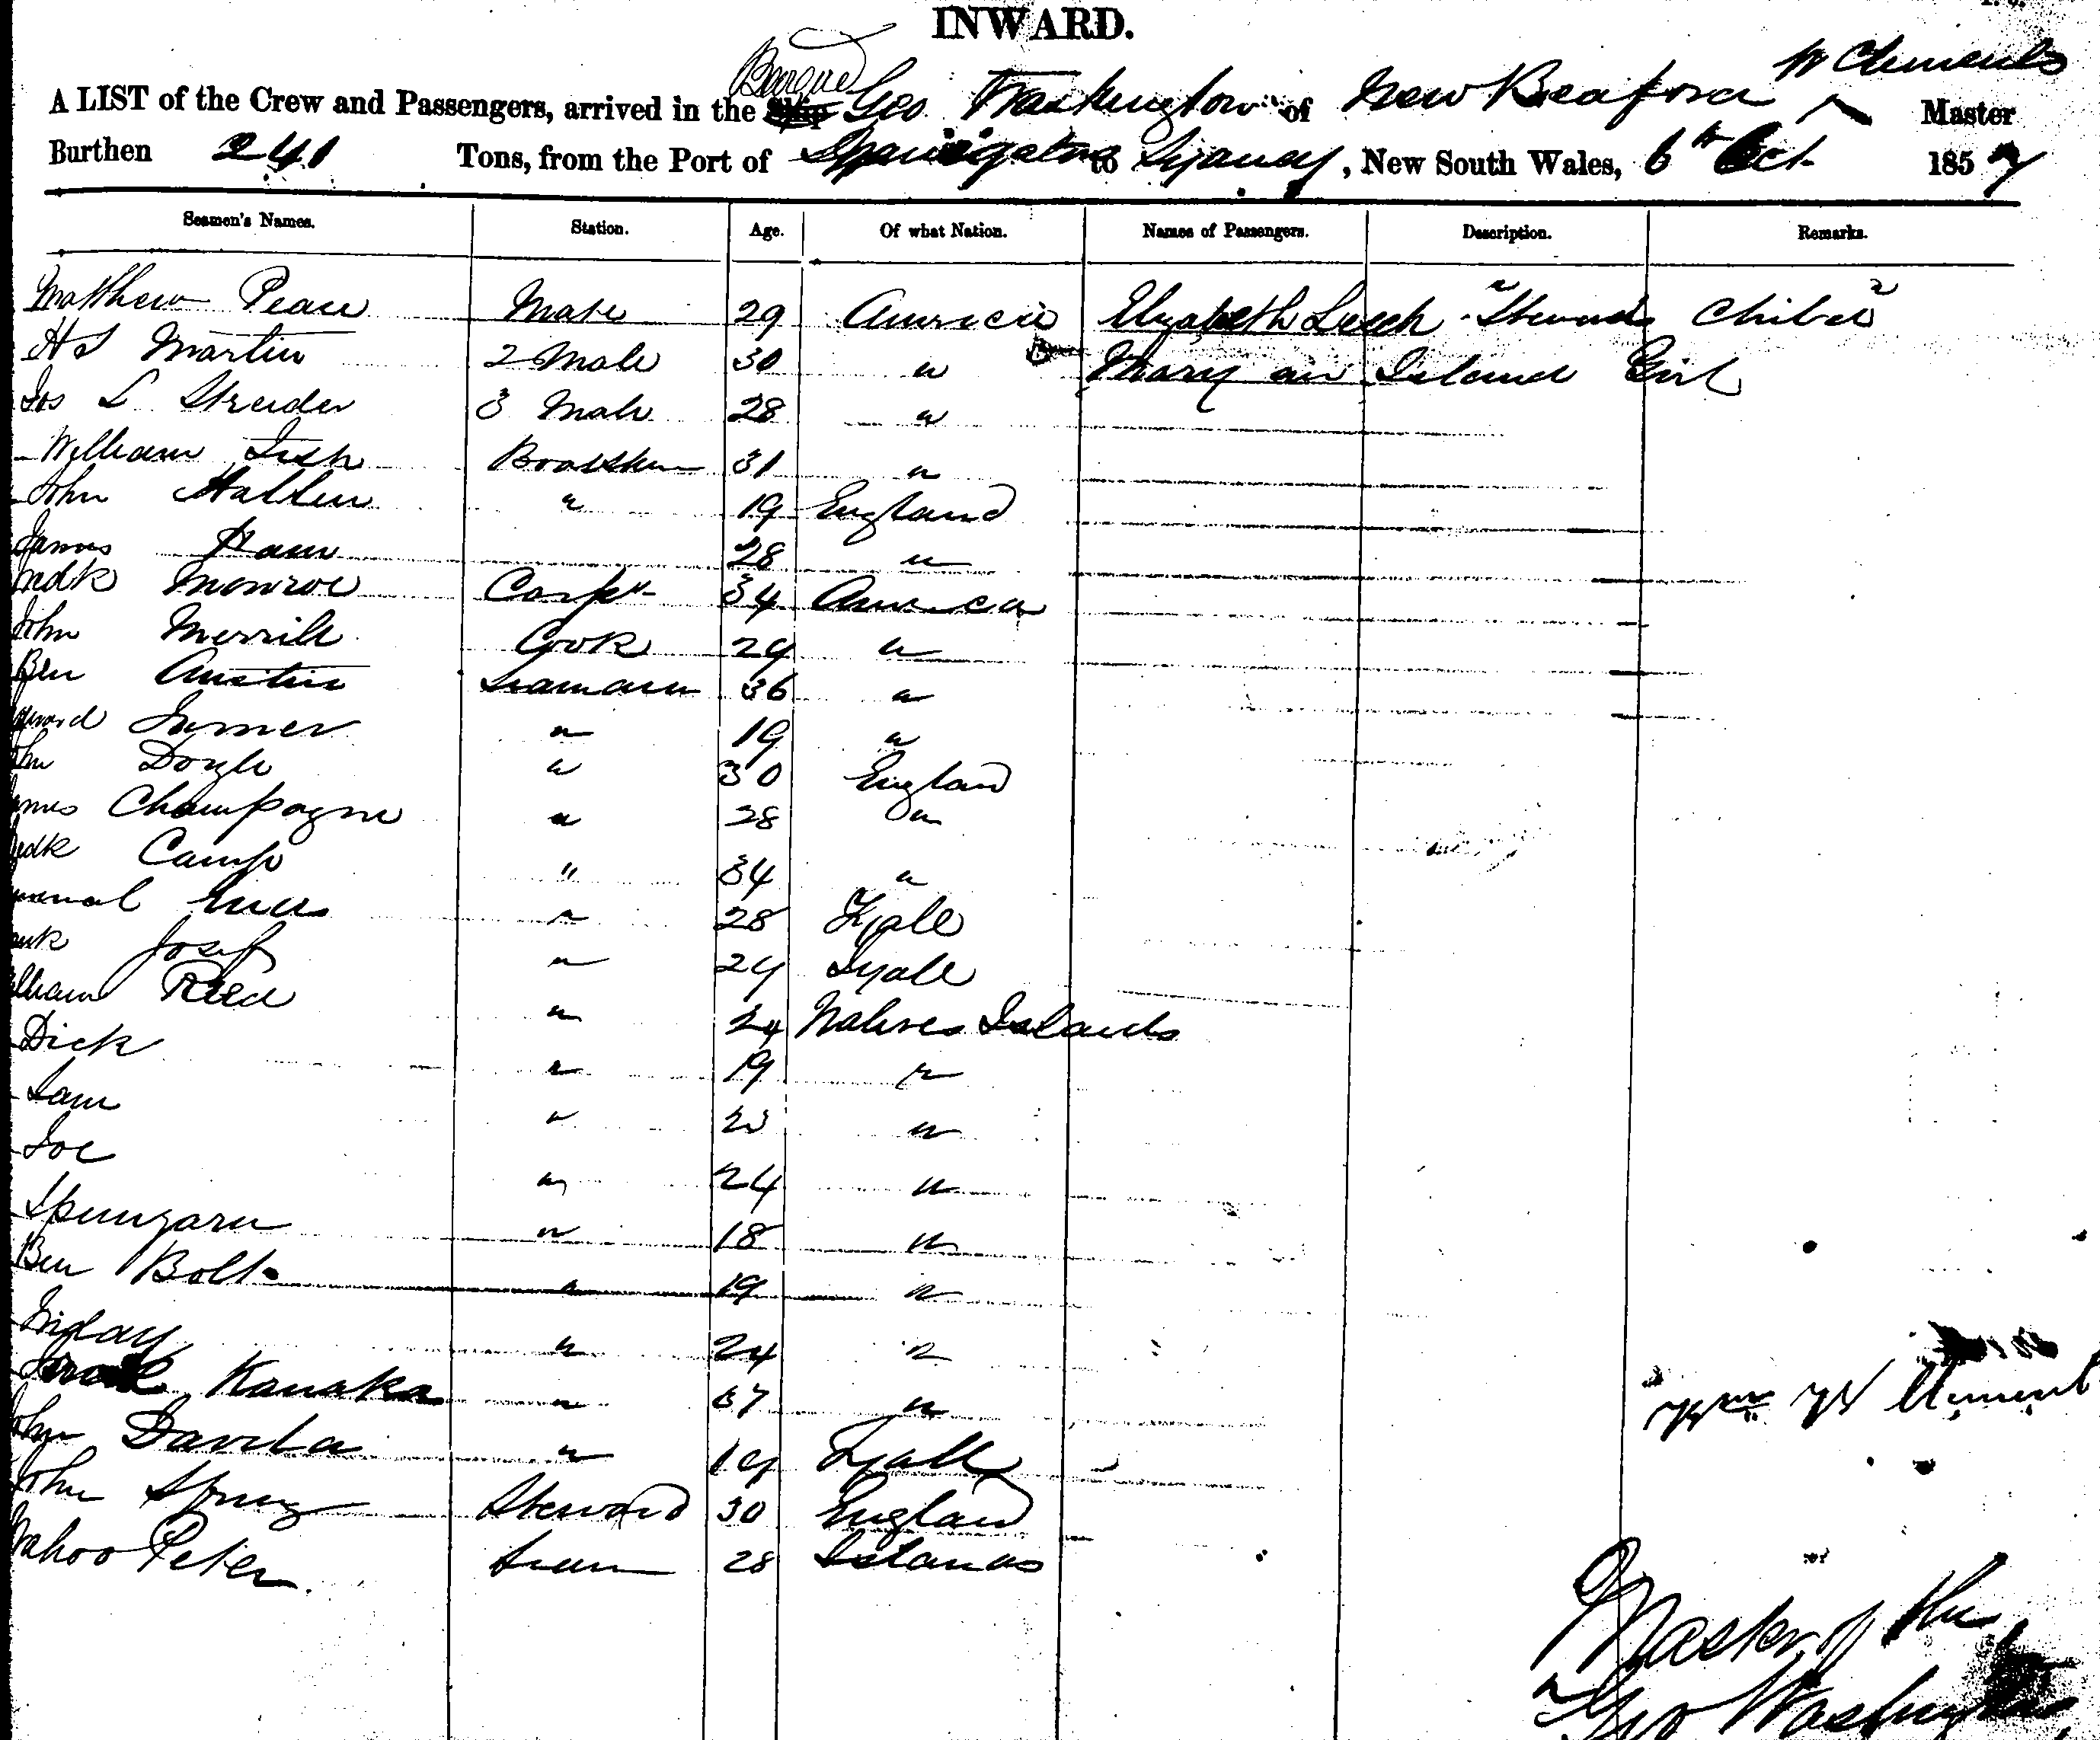 INWARD.
Barque W Clements
A LIST of the Crew and Passengers, arrived in the Ship Geo Washington of New Bedford Master
Burthen 241 Tons, from the Port of to Sydney, New South Wales, 6th Oct 1857
Seamen's Names. Station. Age. Of what Nation. Names of Passengers. Description. Remarks.
Matthew Pease Mate 29 America Elizabeth Leech Stewards Child
H S Martin 2 Mate 30 " Mary an Island Girl
Jos L 3 Mate 28 "
William Fish Boatstn 31 "
John Hallen " 19 England
James 28 "
Fredk Monroe Carptr 34 America
John Merrill Cook 29 "
Ben Austin Seaman 36 "
" 19 "
John Doyle " 30 England
James Champagne " 28 "
Fredk Camp " 34 "
" 28 Fyall
Josef " 24 Fyall
William Reed " 24 Natives Islands
Dick " 19 "
Sam " 23 "
Joe " 24 "
Spunyarn " 18 "
Ben Bolt " 19 "
Friday " 24 "
Kanaka " 37 "
John Davila " 19 Fyall
Wm H Clement
John Spring Steward 30 England
Wahoo Peter Seam 28 Islands
Master of the
Geo Washington